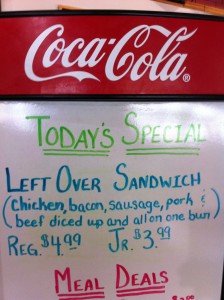 Coca-Cola®
TODAY'S SPECIAL
LEFT OVER SANDWICH
(chicken, bacon, sausage, pork &
beef diced up and all on one bun)
REG. $4.99 JR. $3.99
MEAL DEALS